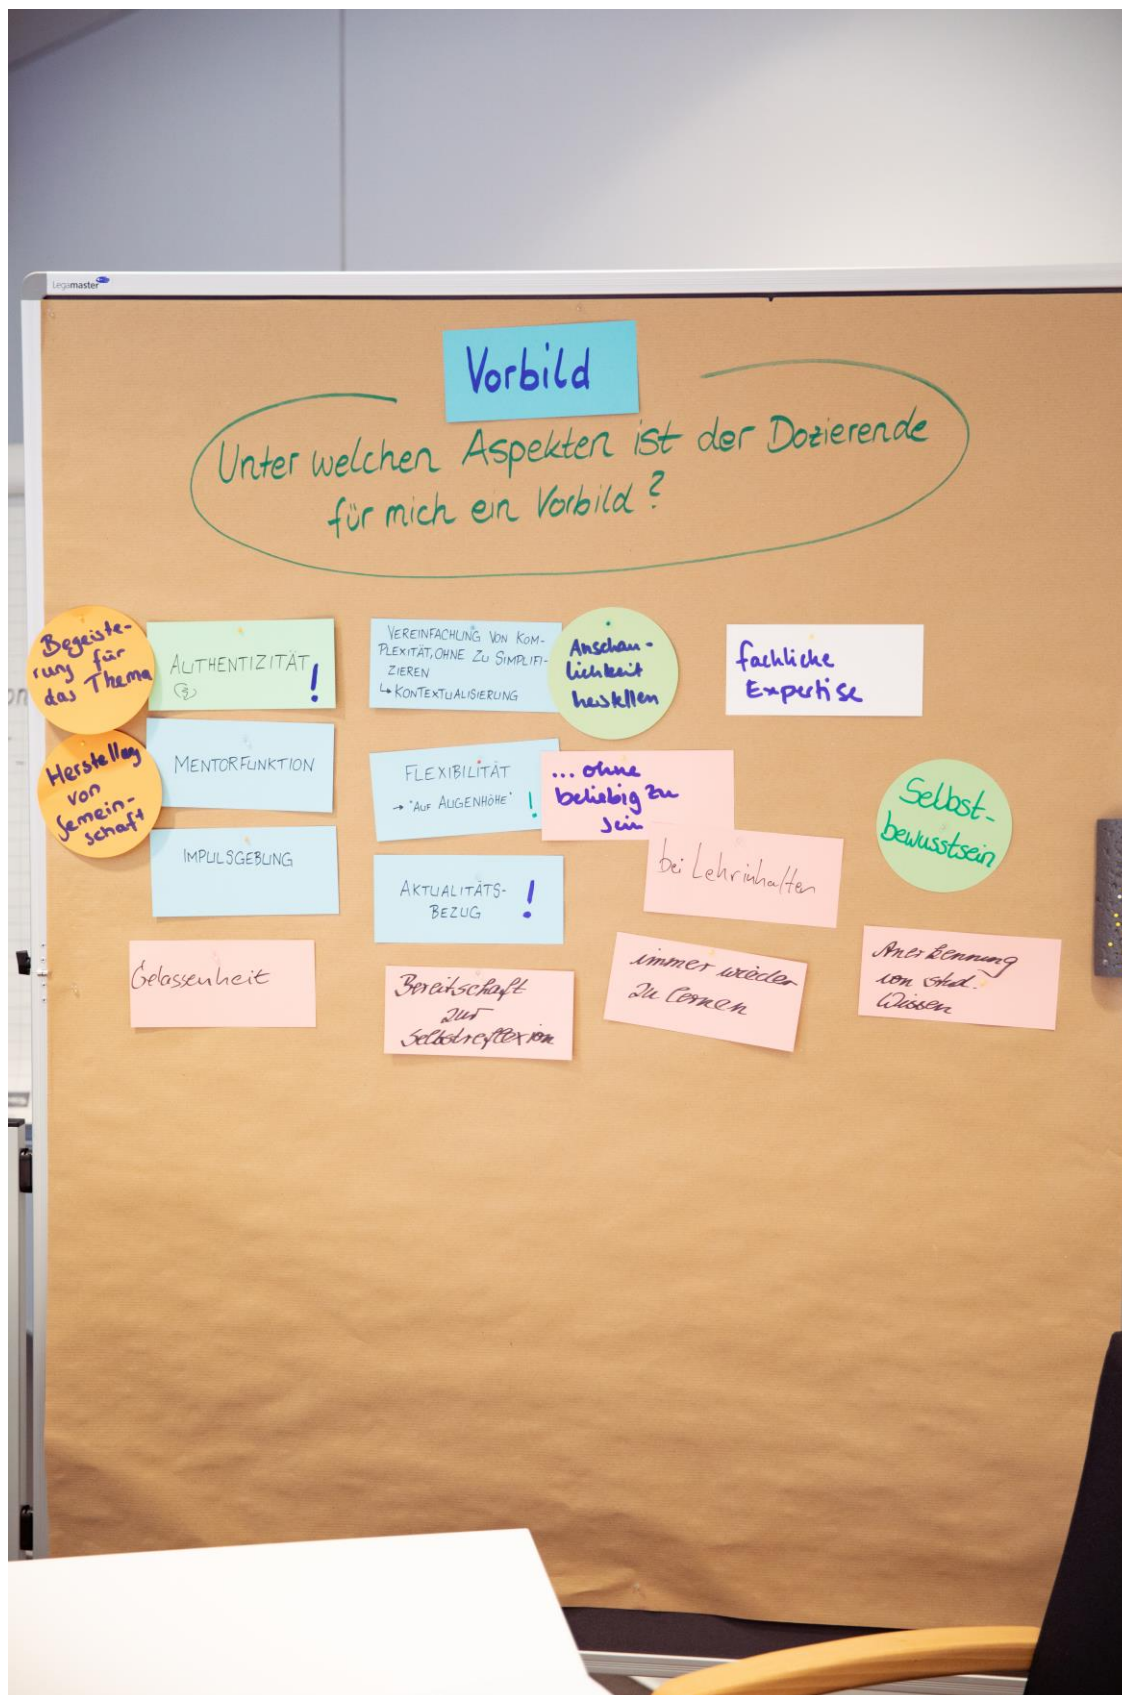 Legamaster
Vorbild
Unter welchen Aspekten ist der Dozierende
für mich ein Vorbild?
Begeiste-
rung für
das Thema
AUTHENTIZITÄT
!
VEREINFACHUNG VON KOM-
PLEXITÄT, OHNE ZU SIMPLIFI-
ZIEREN
↳ KONTEXTUALISIERUNG
Anschau-
lichkeit
herstellen
fachliche
Expertise
Herstellung
von
Gemein-
schaft
MENTORFUNKTION
FLEXIBILITÄT
→ "AUF AUGENHÖHE" !
... ohne
beliebig zu
sein
Selbst-
bewusstsein
IMPULSGEBUNG
AKTUALITÄTS-
BEZUG !
bei Lehrinhalten
Gelassenheit
Bereitschaft
zur
Selbstreflexion
immer wieder
zu lernen
Anerkennung
von stud.
Wissen